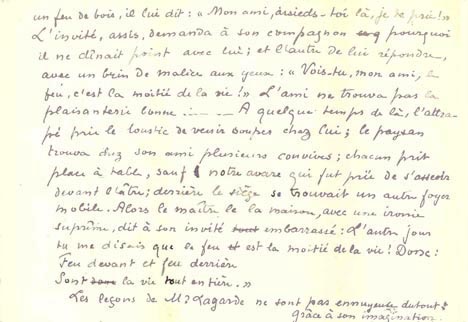 un feu de bois, il lui dit : « Mon ami, assieds-toi là, je te prie ! »
L'invité, assis, demanda à son compagnon pourquoi
il ne dînait point avec lui ; et l'autre de lui répondre,
avec un brin de malice aux yeux : « Vois-tu, mon ami, le
feu, c'est la moitié de la vie ! » L'ami ne trouva pas la
plaisanterie bonne ... — A quelque temps de là, l'attra-
pé prie le loustic de venir souper chez lui ; le paysan
trouva chez son ami plusieurs convives ; chacun prit
place à table, sauf notre avare qui fut prié de s'asseoir
devant l'âtre ; derrière le siège se trouvait un autre foyer
mobile. Alors le maître de la maison, avec une ironie
suprême, dit à son invité embarrassé : L'autre jour
tu me disais que le feu est la moitié de la vie ! Donc :
Feu devant et feu derrière
Sont la vie tout entière. »
Les leçons de Mr Lagarde ne sont pas ennuyeuse du tout
grâce à son imagination.